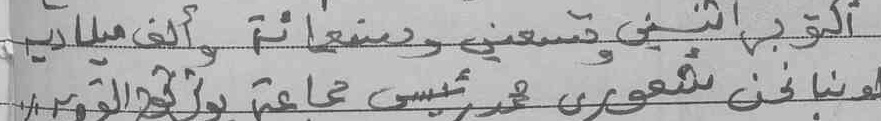 أكتوبر اثنين وتسعين وتسعمائة وألف ميلادية
لدينا نحن شعوري محمد رئيس جماعة